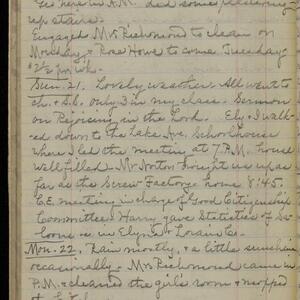 here in A.M. did some plastering
up stairs.
Engaged Mrs Richmond to clean on
Monday & Rose Howe to come Tuesday
$2½ per wk.
Sun. 21. Lovely weather. All went to
ch. & S.S. only 3 in my class. Sermon
on Rejoicing in the Lord. Ely & I walk-
ed down to the Lake Ave, Schoolhouse
where I led the meeting at 7 P.M. house
well filled. Mr Norton brought us up as
far as the Screw Factory home 8:45.
C.E. meeting in charge of Good Citizenship
Committee & Harry gave Statistics of Sa-
loons in Elyria & Lorain Co.
Mon. 22. Rain mostly, & a little sunshine
occasionally. Mrs Richmond came in
P.M. & cleaned the girls room & mopped